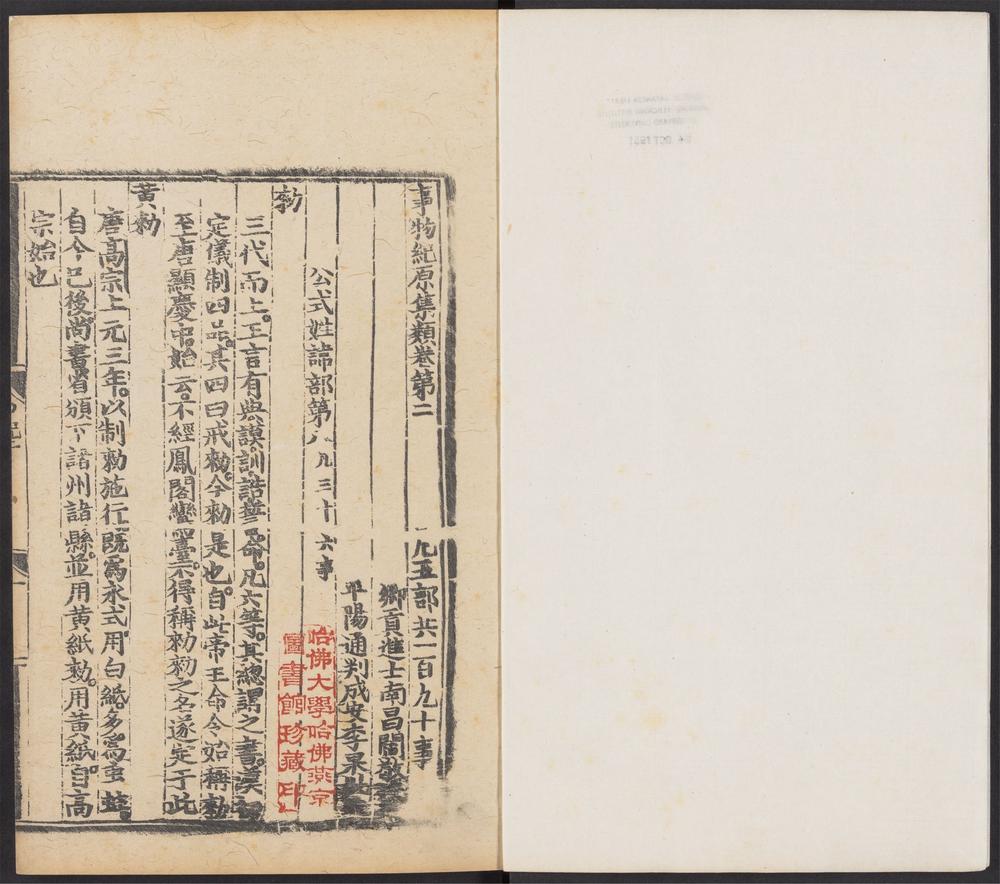 事物紀原集類卷第二　凡五部共一百九十事
鄉貢進士南昌閻敬
平陽通判成安李果
公式姓諱部第八凡三十六事
勑
三代而上王言有典謨訓誥誓命凡六等其總謂之書漢初
定儀制四品其四曰戒勑今勑是也自此帝王命令始稱勑
至唐顯慶中始云不經鳳閣鸞臺不得稱勑勑之名遂定于此
黃勑
唐高宗上元三年以制勑施行既為永式用白紙多為虫蛀
自今已後尚書省頒下諸州諸縣並用黃紙勑用黃紙自高
宗始也
哈佛大學哈佛燕京
圖書館珍藏印